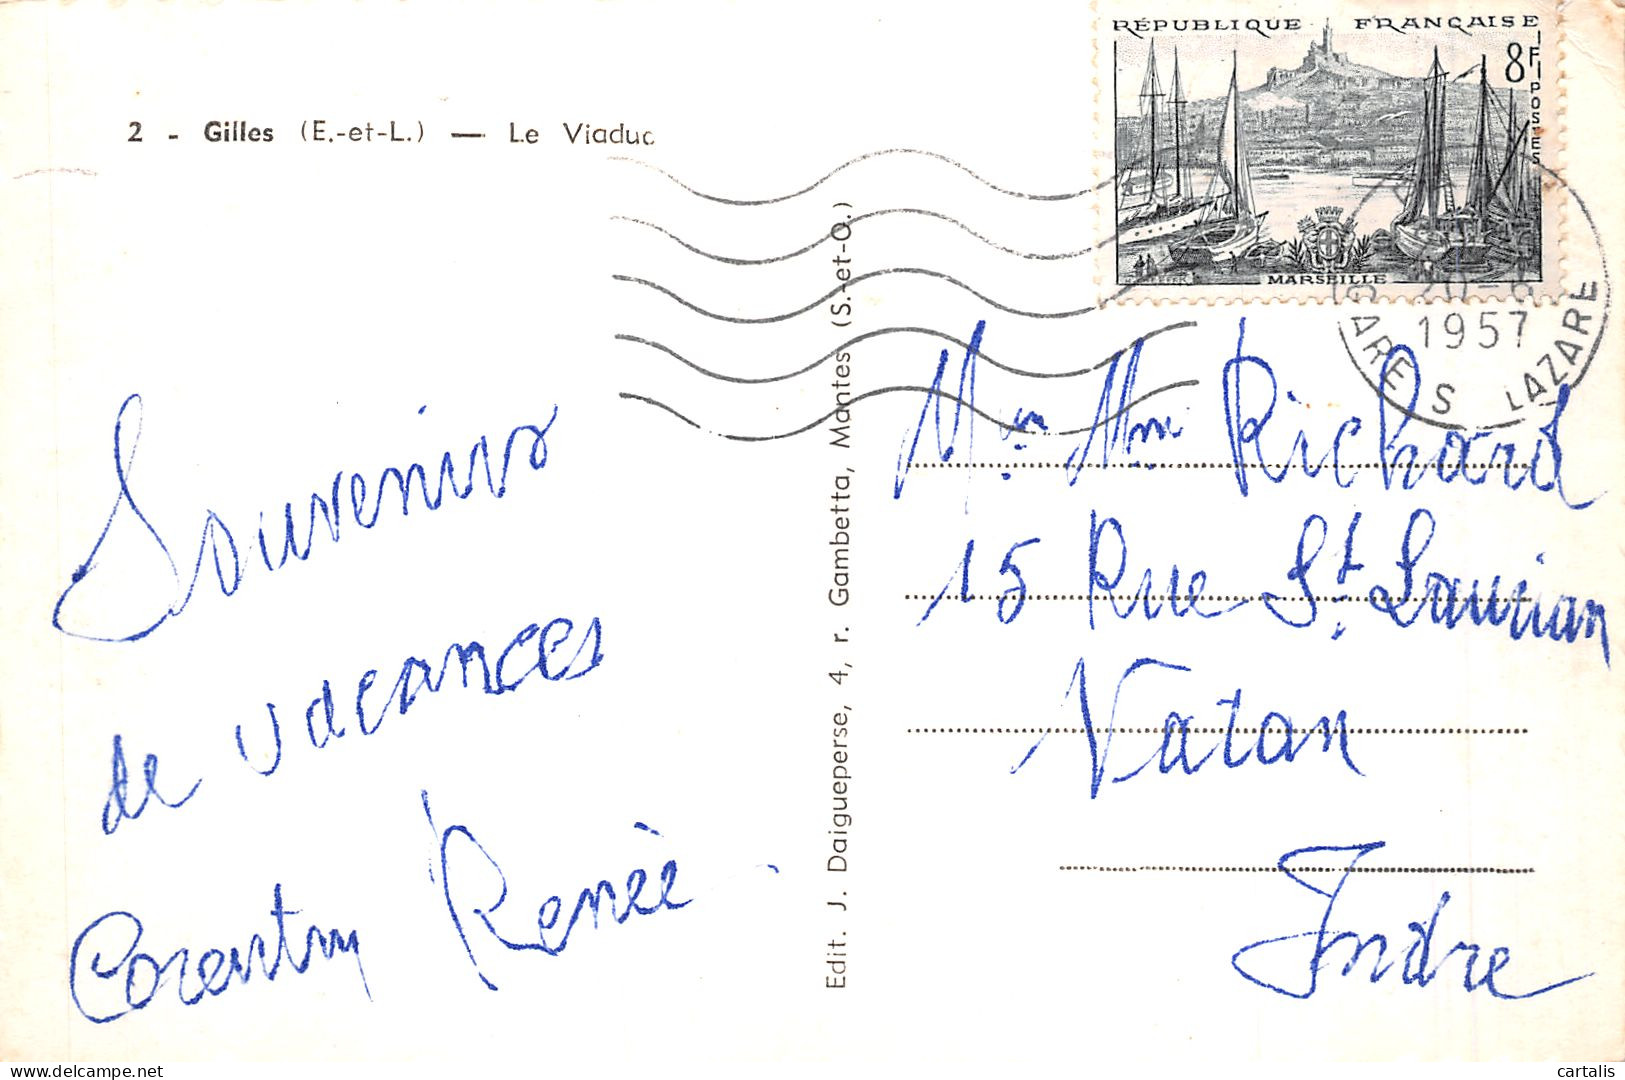 2 - Gilles (E.-et-L.) — Le Viaduc
RÉPUBLIQUE FRANÇAISE
8F
POSTES
MARSEILLE
20-6
1957
GARE S LAZARE
Souvenirs
de vacances
Corentin Renée
Edit. J. Daigueperse, 4, r. Gambetta, Mantes (S.-et-O.)
Mr Mm Richard
15 Rue St Laurian
Vatan
Indre
cartalis